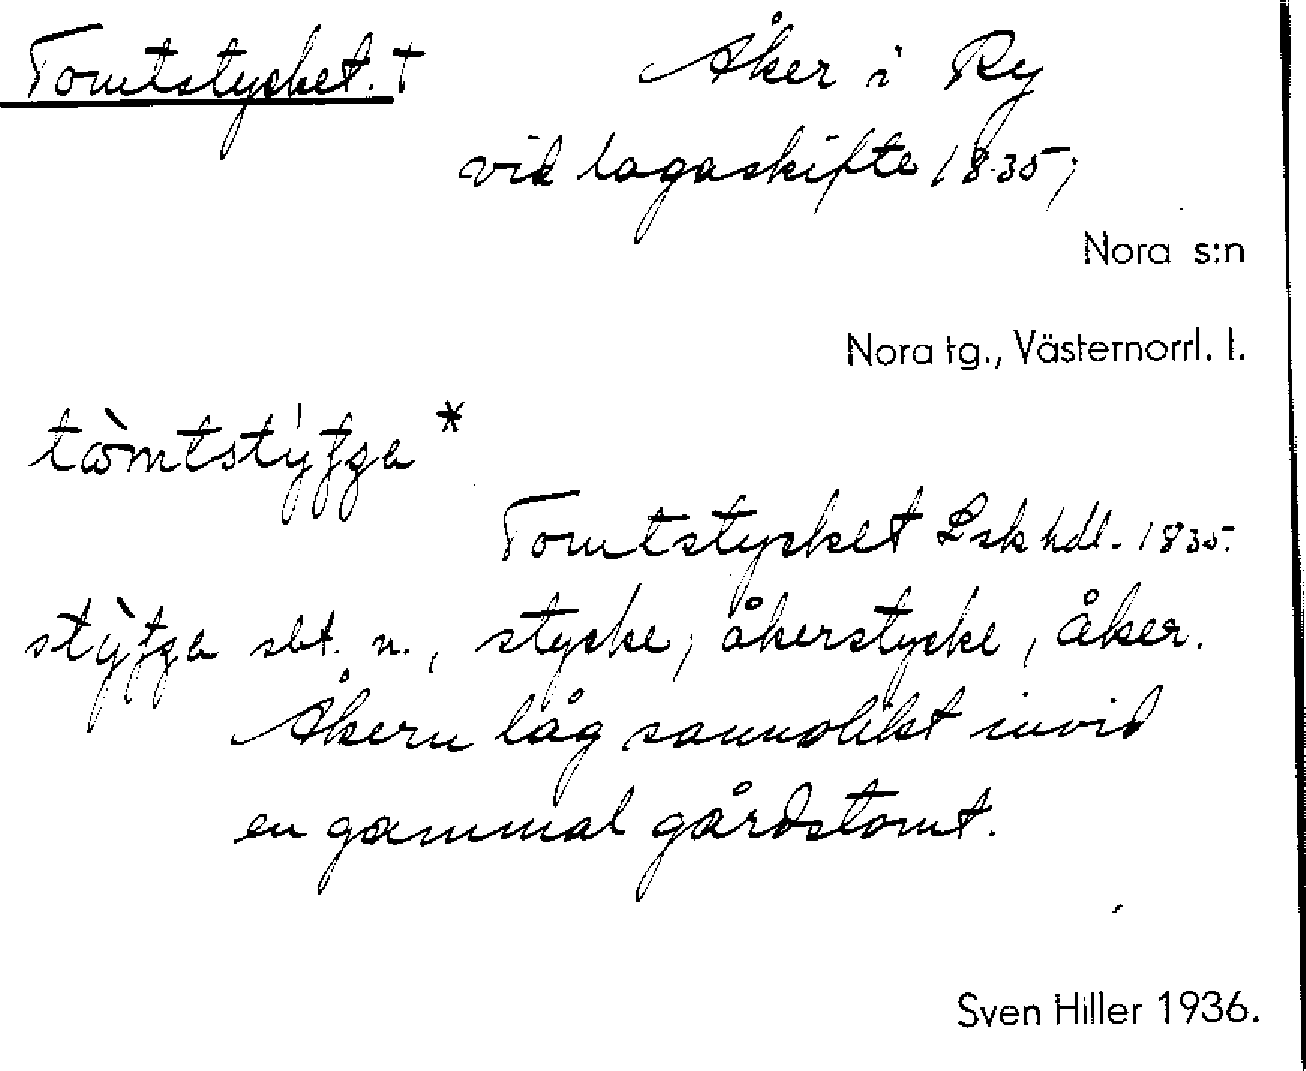 Tomtstycket. † Åker i Ry
vid lagaskifte 1835;
Nora s:n
Nora tg., Västernorrl. l.
Tomtstycket Lsk hdl. 1835.
sbt. n., stycke, åkerstycke, åker.
Åkern låg sannolikt invid
en gammal gårdstomt.
Sven Hiller 1936.